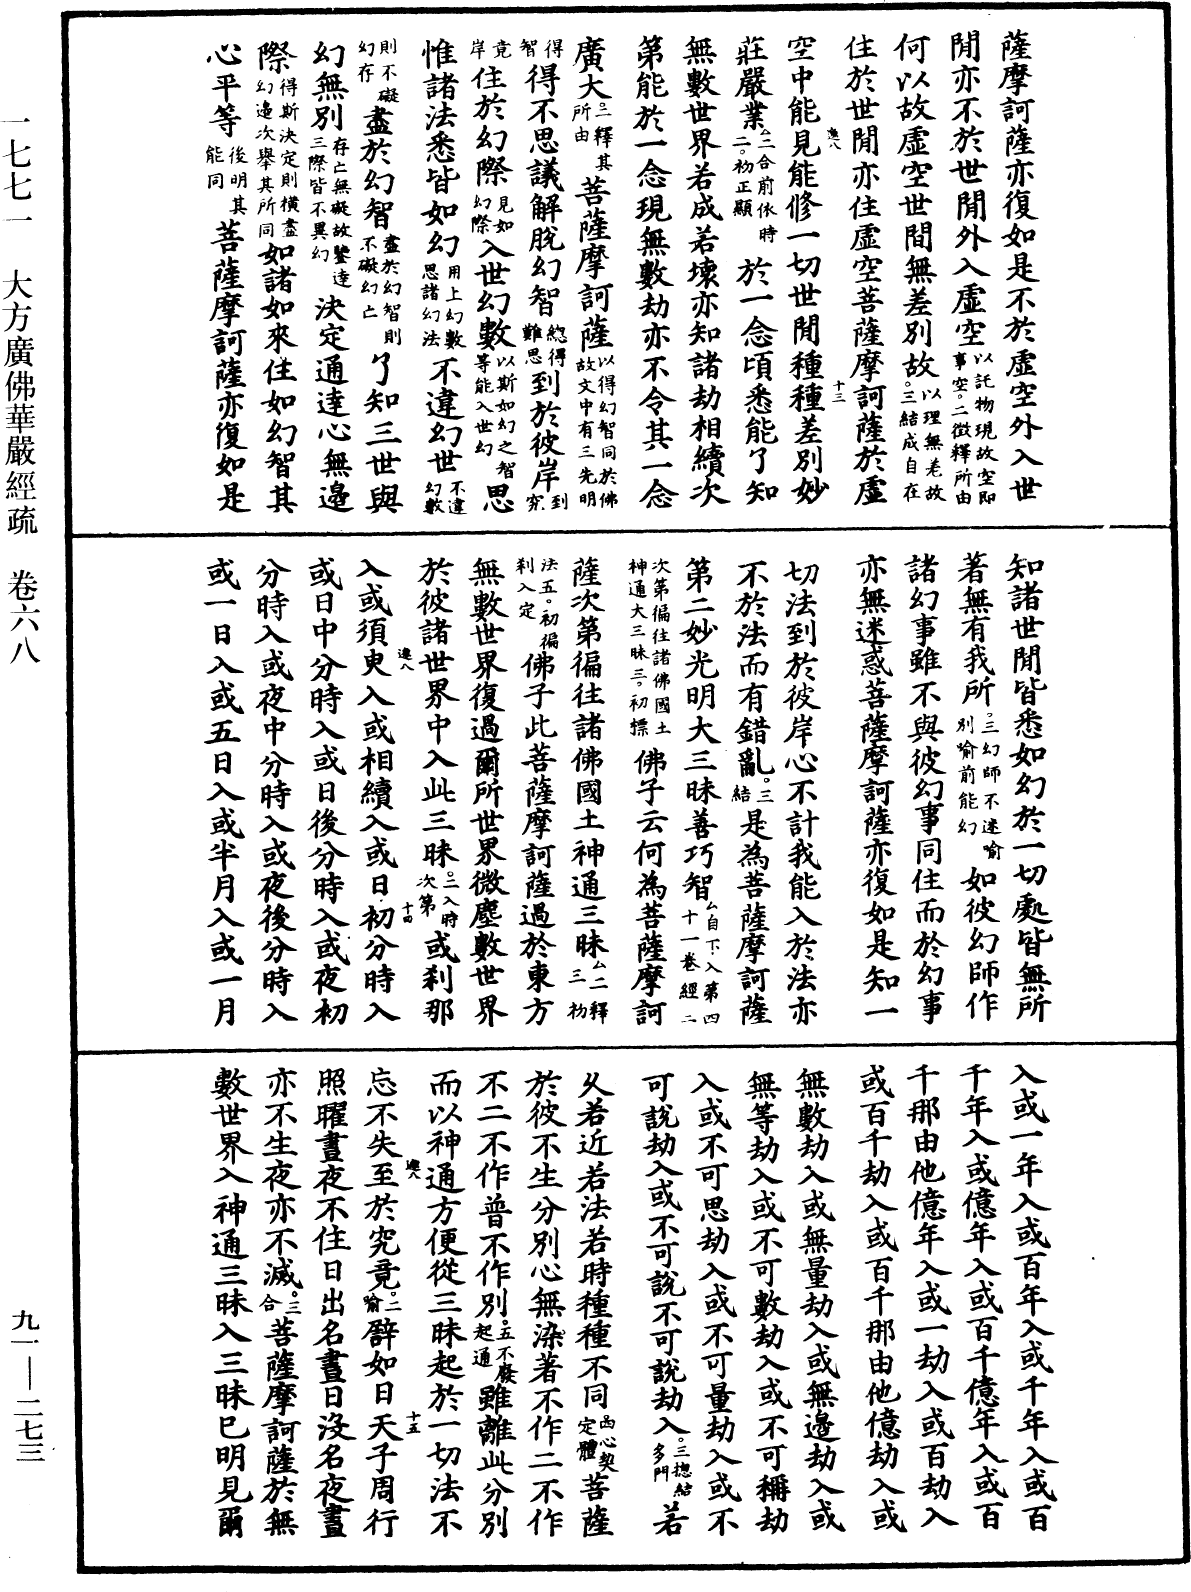 薩摩訶薩亦復如是不於虛空外入世
間亦不於世間外入虛空以託物現故空即事空。二徵釋所由
何以故虛空世間無差別故以理無差故。三結成自在
住於世間亦住虛空菩薩摩訶薩於虛
空中能見能修一切世間種種差別妙
莊嚴業△二合前依時二。初正顯於一念頃悉能了知
無數世界若成若壞亦知諸劫相續次
第能於一念現無數劫亦不令其一念
廣大。二釋其所由菩薩摩訶薩以得幻智同於佛故文中有三先明
得智得不思議解脫幻智總得難思到於彼岸到究
竟岸住於幻際見如幻際入世幻數以斯如幻之智等能入世幻思
惟諸法悉皆如幻用上幻數思諸幻法不違幻世不違幻數
則不礙幻存盡於幻智盡於幻智則不礙幻亡了知三世與
幻無別存亡無礙故鑒達三際皆不異幻決定通達心無邊
際得斯決定則橫盡幻邊次舉其所同如諸如來住如幻智其
心平等後明其能同菩薩摩訶薩亦復如是
知諸世間皆悉如幻於一切處皆無所
著無有我所。三幻師不迷喻別喻前能幻如彼幻師作
諸幻事雖不與彼幻事同住而於幻事
亦無迷惑菩薩摩訶薩亦復如是知一
切法到於彼岸心不計我能入於法亦
不於法而有錯亂。三結是為菩薩摩訶薩
第二妙光明大三昧善巧智△自下入第四十一卷經二
次第徧往諸佛國土神通大三昧三。初標佛子云何為菩薩摩訶
薩次第徧往諸佛國土神通三昧△二釋三初
法五。初徧剎入定佛子此菩薩摩訶薩過於東方
無數世界復過爾所世界微塵數世界
於彼諸世界中入此三昧。二入時次第或剎那
入或須臾入或相續入或日初分時入
或日中分時入或日後分時入或夜初
分時入或夜中分時入或夜後分時入
或一日入或五日入或半月入或一月
入或一年入或百年入或千年入或百
千年入或億年入或百千億年入或百
千那由他億年入或一劫入或百劫入
或百千劫入或百千那由他億劫入或
無數劫入或無量劫入或無邊劫入或
無等劫入或不可數劫入或不可稱劫
入或不可思劫入或不可量劫入或不
可說劫入或不可說不可說劫入。三總結多門若
久若近若法若時種種不同函心契定體菩薩
於彼不生分別心無染著不作二不作
不二不作普不作別。五不廢起通雖離此分別
而以神通方便從三昧起於一切法不
忘不失至於究竟。二喻譬如日天子周行
照曜晝夜不住日出名晝日沒名夜晝
亦不生夜亦不滅。三合菩薩摩訶薩於無
數世界入神通三昧入三昧已明見爾
邀八
十三
邀八
十四
邀八
十五
一七七一　大方廣佛華嚴經疏　卷六八
九一—二七三